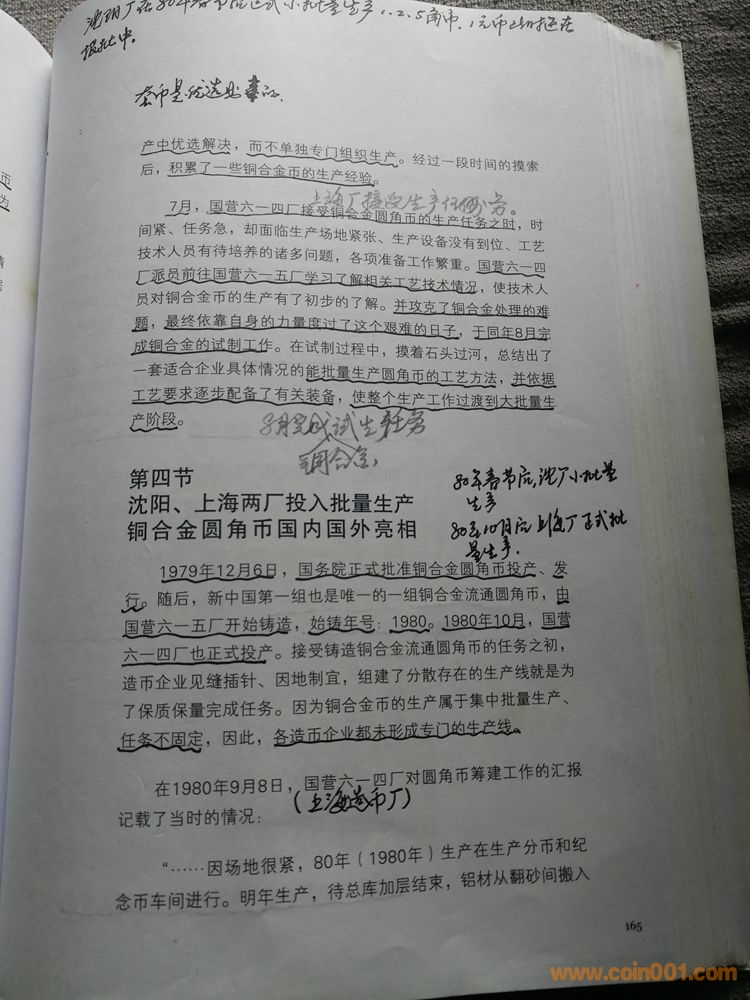 沈阳厂在80年春节后正式小批量生产1.2.5角币、1元币
报批中
套币是优选出来的、
产中优选解决，而不单独专门组织生产。经过一段时间的摸索
后，积累了一些铜合金币的生产经验。
上海厂接受生产任务。
7月，国营六一四厂接受铜合金圆角币的生产任务之时，时
间紧、任务急，却面临生产场地紧张、生产设备没有到位、工艺
技术人员有待培养的诸多问题，各项准备工作繁重。国营六一四
厂派员前往国营六一五厂学习了解相关工艺技术情况，使技术人
员对铜合金币的生产有了初步的了解。并攻克了铜合金处理的难
题，最终依靠自身的力量度过了这个艰难的日子，于同年8月完
成铜合金的试制工作。在试制过程中，摸着石头过河，总结出了
一套适合企业具体情况的能批量生产圆角币的工艺方法，并依据
工艺要求逐步配备了有关装备，使整个生产工作过渡到大批量生
产阶段。
8月完成试生产任务
铜合金
第四节
沈阳、上海两厂投入批量生产
铜合金圆角币国内国外亮相
80年春节后，沈厂小批量
生产
80年10月后上海厂正式批
量生产.
1979年12月6日，国务院正式批准铜合金圆角币投产、发
行。随后，新中国第一组也是唯一的一组铜合金流通圆角币，由
国营六一五厂开始铸造，始铸年号：1980。1980年10月，国营
六一四厂也正式投产。接受铸造铜合金流通圆角币的任务之初，
造币企业见缝插针、因地制宜，组建了分散存在的生产线就是为
了保质保量完成任务。因为铜合金币的生产属于集中批量生产、
任务不固定，因此，各造币企业都未形成专门的生产线。
在1980年9月8日，国营六一四厂对圆角币筹建工作的汇报
（上海造币厂）
记载了当时的情况：
“……因场地很紧，80年（1980年）生产在生产分币和纪
念币车间进行。明年生产，待总库加层结束，铝材从翻砂间搬入
165
www.coin001.com